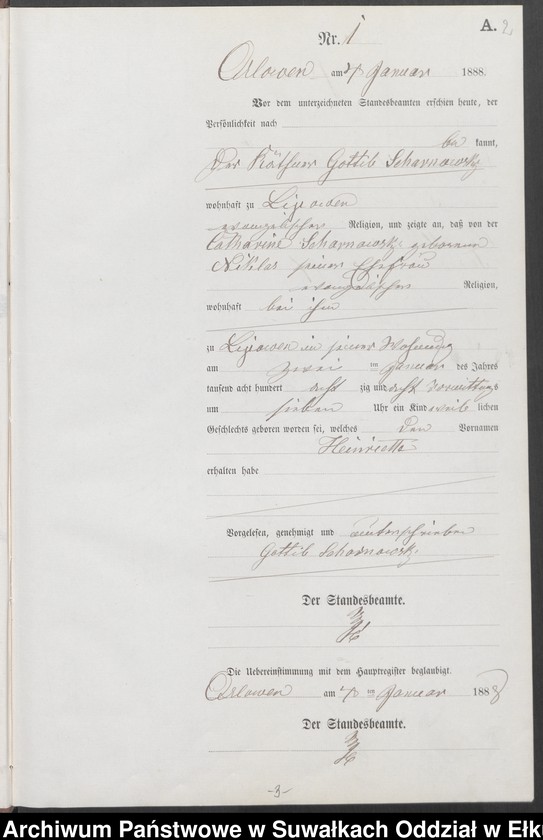 A. 2
Nr. 1
Orlowen am 4 Januar 1888.
Vor dem unterzeichneten Standesbeamten erschien heute, der
Persönlichkeit nach
be kannt,
der Käthner Gottlib Scharnowski
wohnhaft zu Lipowen
evangelischer Religion, und zeigte an, daß von der
Catharine Scharnowski geborenen
Niklas seiner Ehefrau
evangelischer Religion,
wohnhaft bei ihm
zu Lipowen in seiner Wohnung
am zwei ten Januar des Jahres
tausend acht hundert acht zig und acht Vormittags
um sieben Uhr ein Kind weib lichen
Geschlechts geboren worden sei, welches den Vornamen
Henriette
erhalten habe
Vorgelesen, genehmigt und unterschrieben
Gottlib Scharnowski
Der Standesbeamte.
Die Uebereinstimmung mit dem Hauptregister beglaubigt.
Orlowen am 4 ten Januar 1888
Der Standesbeamte.
-3-
Archiwum Państwowe w Suwałkach Oddział w Ełku